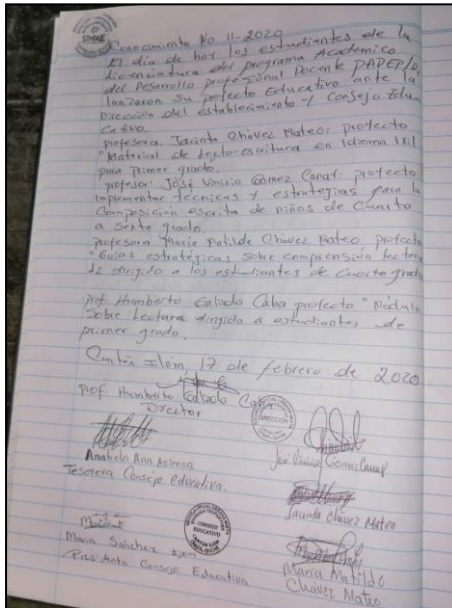 Conocimiento No 11-2020
El día de hoy los estudiantes de la
licenciatura del programa Academico
del Desarrollo profesional Docente PADEP/D,
lanzaron su protecto Educativo ante la
Dirección del establecimiento y Consejo Edu-
cativo.
profesora. Jacinta Chávez Mateo: protecto
"Material de lecto-escritura en Idioma Ixil
para primer grado.
profesor: José Vinicio Gómez Canay: protecto
Implementar técnicas y estratégias para la
Composición escrita de niños de Cuarto
a sexto grado.
profesora María Matilde Chávez Mateo, protecto
"Guías estratégicas sobre comprensión lectora
L2 dirigido a los estudiantes de cuarto grado
prof. Humberto Galindo Caba protecto "Módulo
Sobre Lectura dirigido a estudiantes de
primer grado.
Cantón Ilom, 17 de febrero de 2020
prof. Humberto
Director
DIRECCIÓN
José Vinicio Gómez Canay
Tesorera Consejo educativa.
Jacinta Chávez Mateo
CONSEJO
EDUCATIVO
María Sánchez
Presidenta Consejo Educativa
María Matilde
Chávez Mateo